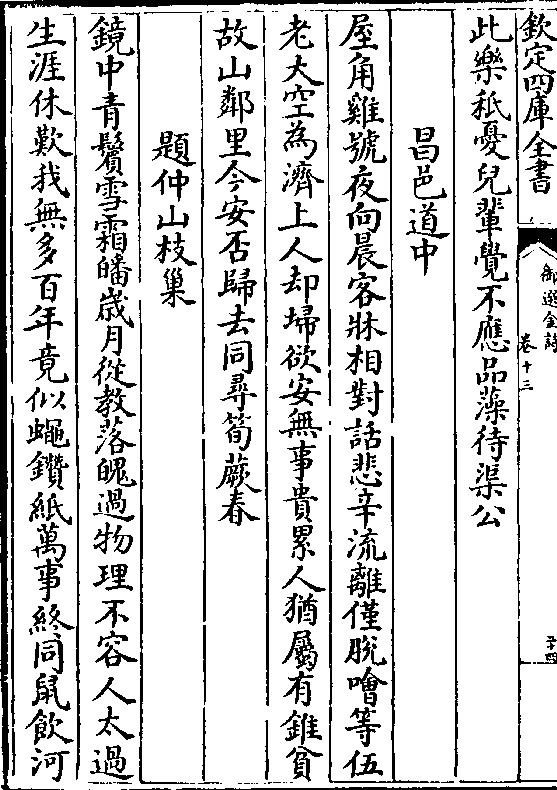 欽定四庫全書
御選金詩
卷十三
二十四
此樂秪憂兒輩覺不應品藻待渠公
昌邑道中
屋角雞號夜向晨客牀相對話悲辛流離僅脫噲等伍
老大空為濟上人却埽欲安無事貴累人猶屬有錐貧
故山鄰里今安否歸去同尋筍蕨春
題仲山枝巢
鏡中青鬢雪霜皤歲月從教落魄過物理不容人太過
生涯休歎我無多百年竟似蠅鑽紙萬事終同鼠飲河